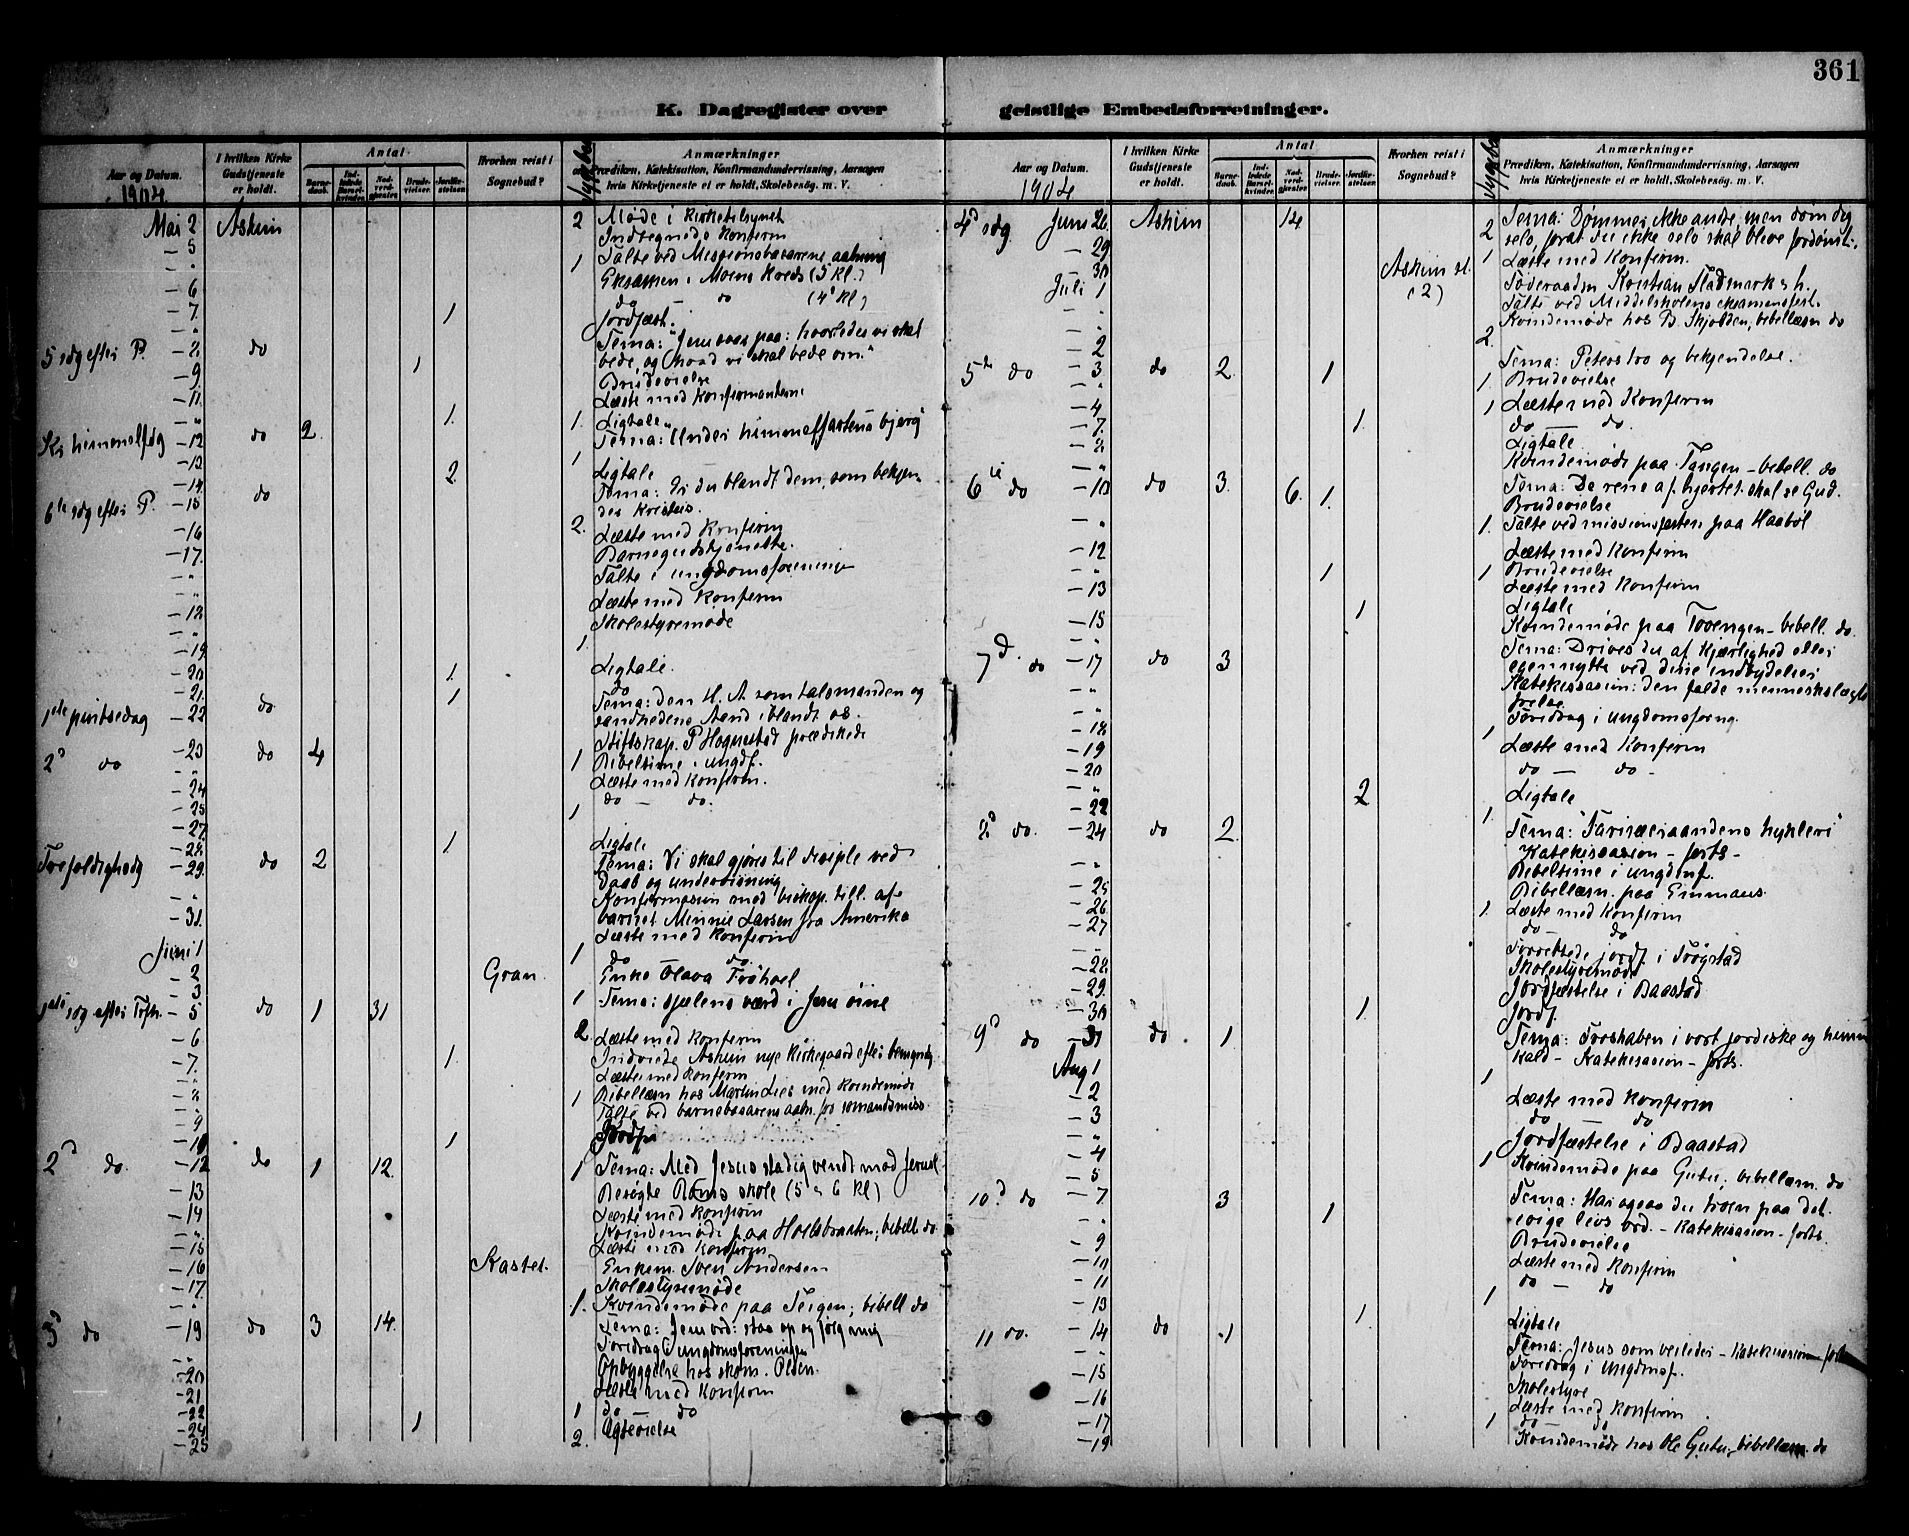 361
K. Dagregister over geistlige Embedsforretninger.
Aar og Datum.
1904
I hvilken Kirke Gudstjeneste er holdt.
Antal
Barnedaab.
Indledede Barselkvinder.
Nadverdgjæster.
Brudevielser.
Jordfæstelser.
Hvorhen reist i Sognebud?
Anmærkninger
Prædiken, Katekisation, Konfirmandundervisning, Aarsagen
hvis Kirketjeneste ei er holdt, Skolebesøg. m. V.
Mai 2 Askim 2 Møde i Kirketilsynet
Indtegnede Konfirm
- 5 Talte ved Missionsbasarens aabning
1 Eksamen i Moens Kreds (3 kl.)
- 6 do - do (4 kl)
- 7. 1 Jordfæst.
5 søg efter P. - 8 do Tema: "Jesu svar paa: hvorledes vi skal
bede, og hvad vi skal bede om."
- 9 1 Brudevielse
- 11. Læste med Konfirmanterne
1. 1. Ligtale
Kr himmelfdg - 12 do 2. Tema: "Under himmelfartens bjerg"
- 13 1 Ligtale
- 14 2.
6te søg efter P. - 15 do Tema: Er du blandt dem, som bekjen-
des Kristus.
- 16 2. Læste med Konfirm
- 17. Barnegudstjeneste.
Talte i ungdomsforening
Læste med Konfirm
- 18 Skolestyremøde
- 19 1.
- 20 1. Ligtale.
- 21. 1 do
1ste pintsedag - 22 do Tema: den H. A. som talsmanden og
sandhedens Aand iblandt os.
2d do - 23 do 4 Stiftskap. P Hognestad prædikede
1 Bibeltime i ungdf.
- 24 Læste med Konfirm.
- 25 do - do.
- 27 1
- 28. 1 Ligtale
Trefoldighdg - 29. do 2 Tema: Vi skal gjøres til disiple ved
Daab og undervisning
Konfirmasion med biskop. till. af
barnet Minnie Larsen fra Amerika
- 31. Læste med Konfirm
Juni 1 1 do do.
- 2 Gran. Enke Olava Frøhoel
- 3 1
1ste søg efter Trfh. - 5 do 1 31 Tema: sjælens værd i Jesu øine
- 6 2 Læste med Konfirm
- 7. 1. Indviede Askim nye Kirkegaard efter bemyndg
Læste med Konfirm
- 8 1 Bibellæsn hos Martin Lies med Kvindemøde
- 9 Talte ved barnebasarens aabn. for sømandsmiss.
- 10 1 Jordf
2d do. - 12 do 1 12. 1 Tema: Med Jesus stadig vendt mod Jerusl.
- 13 Besøgte Røms skole (5 & 6 kl)
- 14 Læste med Konfirm
Kvindemøde paa Hoelsbraaten; bibell. do
- 15 Læste med Konfirm
- 16 Kastet. Enkem. Sven Andersen
- 17. Skolestyremøde
1. Kvindemøde paa Teigen; bibell do
3d do - 19 do 3 14. Tema: Jesu ord: staa op og følg mig
Foredrag i ungdomsforeningen
- 20 Opbyggelse hos skom. Olsen.
- 21 Læste med Konfirm
- 22 1 do do
- 24 1
- 25 2.
Aar og Datum.
1904
I hvilken Kirke Gudstjeneste er holdt.
Antal
Barnedaab.
Indledede Barselkvinder.
Nadverdgjæster.
Brudevielser.
Jordfæstelser.
Hvorhen reist i Sognebud?
Anmærkninger
Prædiken, Katekisation, Konfirmandundervisning, Aarsagen
hvis Kirketjeneste ei er holdt, Skolebesøg. m. V.
4d søg. Juni 26 Askim 14 2 Tema: Dømmer ikke andre, men døm dig
selv, forat du ikke selv skal blive fordømt.
- 29 1 Læste med Konfirm.
- 30 Askim st. (2) Føderaadsm Kristian Fladmark s. h.
Juli 1 Talte ved Middelskolens eksamensfest.
Kvindemøde hos B. Skjolden, bibellæsn do
- 2 2.
5te do - 3 do 2 1 Tema: Peters tro og bekjendelse.
1. Brudevielse
- 4 1 Læste med Konfirm
- 7. 1. do - do.
- 8 Ligtale.
Kvindemøde paa Tangen - bibell. do
6te do - 10 do 3. 6. 1. Tema: De rene af hjertet skal se Gud.
Brudevielse
1. Talte ved missionsfesten paa Haabøl
- 12 Læste med Konfirm
1 1 Brudevielse
- 13 Læste med Konfirm
- 15 1 Ligtale
Kvindemøde paa Tovengen - bibell. do.
7d. do - 17 do 3 Tema: Drives du af Kjærlighed eller
egennytte ved dine indbydelser
Katekisasion: den falde menneskeslægts
frelse
1 Foredrag i ungdomsforng.
- 18 Læste med Konfirm
- 19 do - do -
- 20
2 Ligtale
- 22 1.
8d do. - 24 do 2 Tema: "Farisæeraandens hykleri"
Katekisasion - forts -
Bibeltime i ungdmf.
- 25 Bibellæsn. paa Emmaus.
- 26 1. Læste med Konfirm
- 27 do - do
Forrettede jordf. i Trøgstad
- 28 Skolestyremøde
- 29. Jordfæstelse i Baastad
- 30 1. Jordf.
9d do - 31 do 1. Tema: Troskaben i vort jordiske og himm
kald - Katekisasion - forts.
Aug 1 1
- 2 Læste med Konfirm
- 3 do do
Jordfæstelse i Baastad
- 4 1 Kvindemøde paa Gutu; bibellæsn. do
- 5
10d do - 7 3 1 Tema: Har ogsaa du troen paa det
evige livs ord. - Katekisasion - forts.
- 9 Brudevielse
- 10 Læste med Konfirm
- 11 do - do
- 13 1 1.
11 do. - 14 do 1 Ligtale
Tema: Jesus som veileder - Katekisasion - forts
- 15 Foredrag i Ungdmsf.
Skolestyre
- 16 Læste med Konfirm
- 17 1 do - do
- 19 Kvindemøde hos Ole Gutu; bibellæsn. do